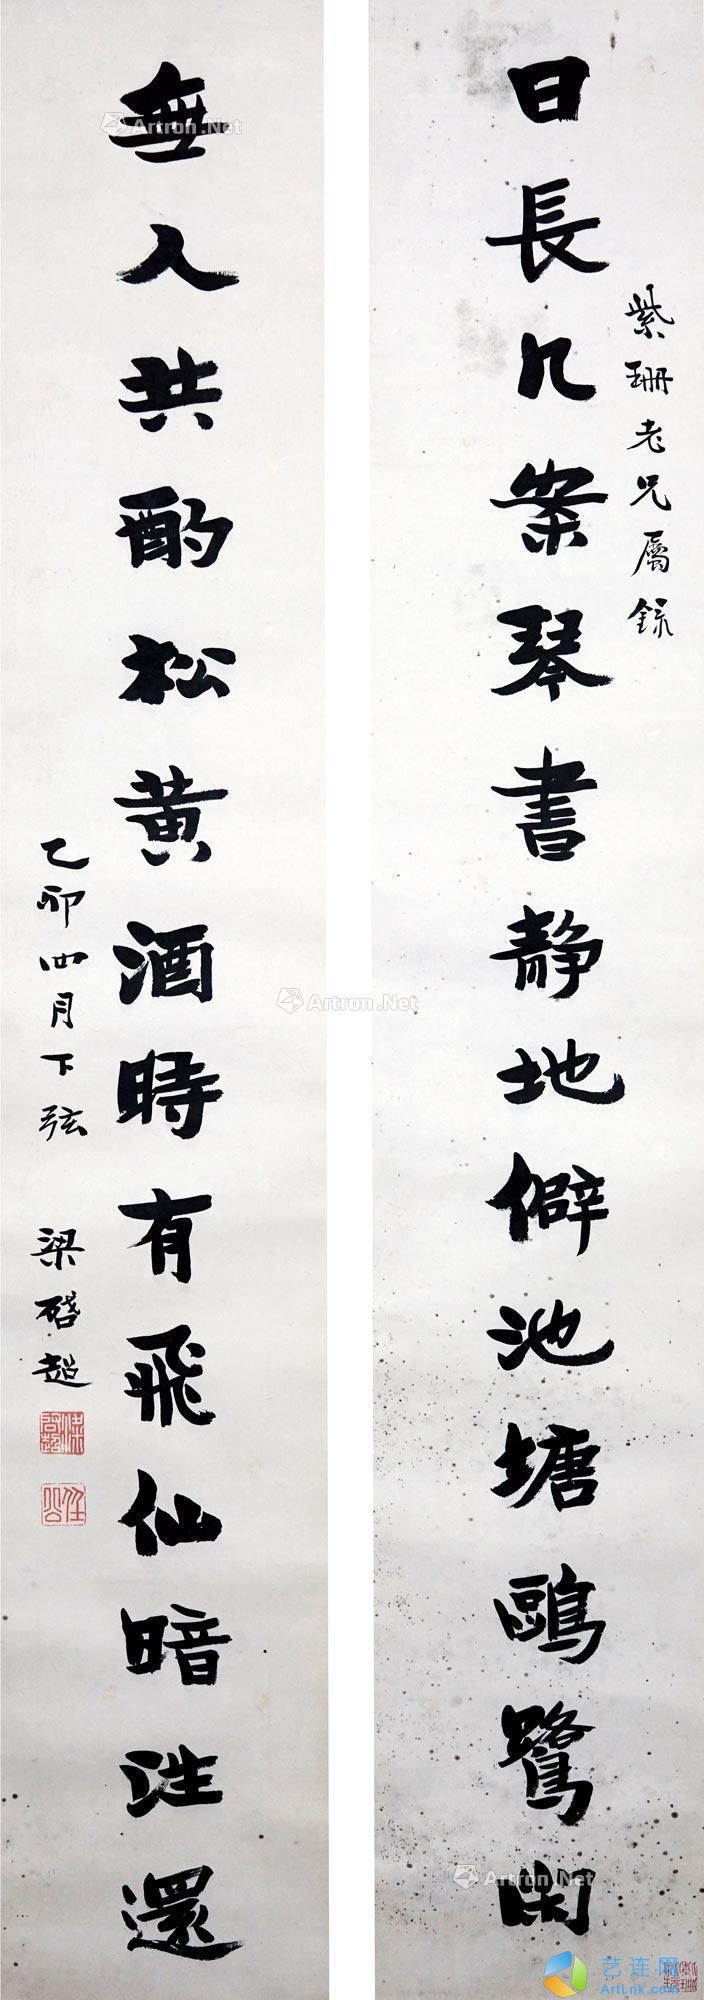 紫珊老兄屬錄
日長几案琴書静地僻池塘鷗鷺閑
無人共酌松黃酒時有飛仙暗往還
乙卯四月下弦 梁啓超
梁啓超
任公
Artron.Net
Artron.Net
Artron.Net
艺连网
ArtLnk.com